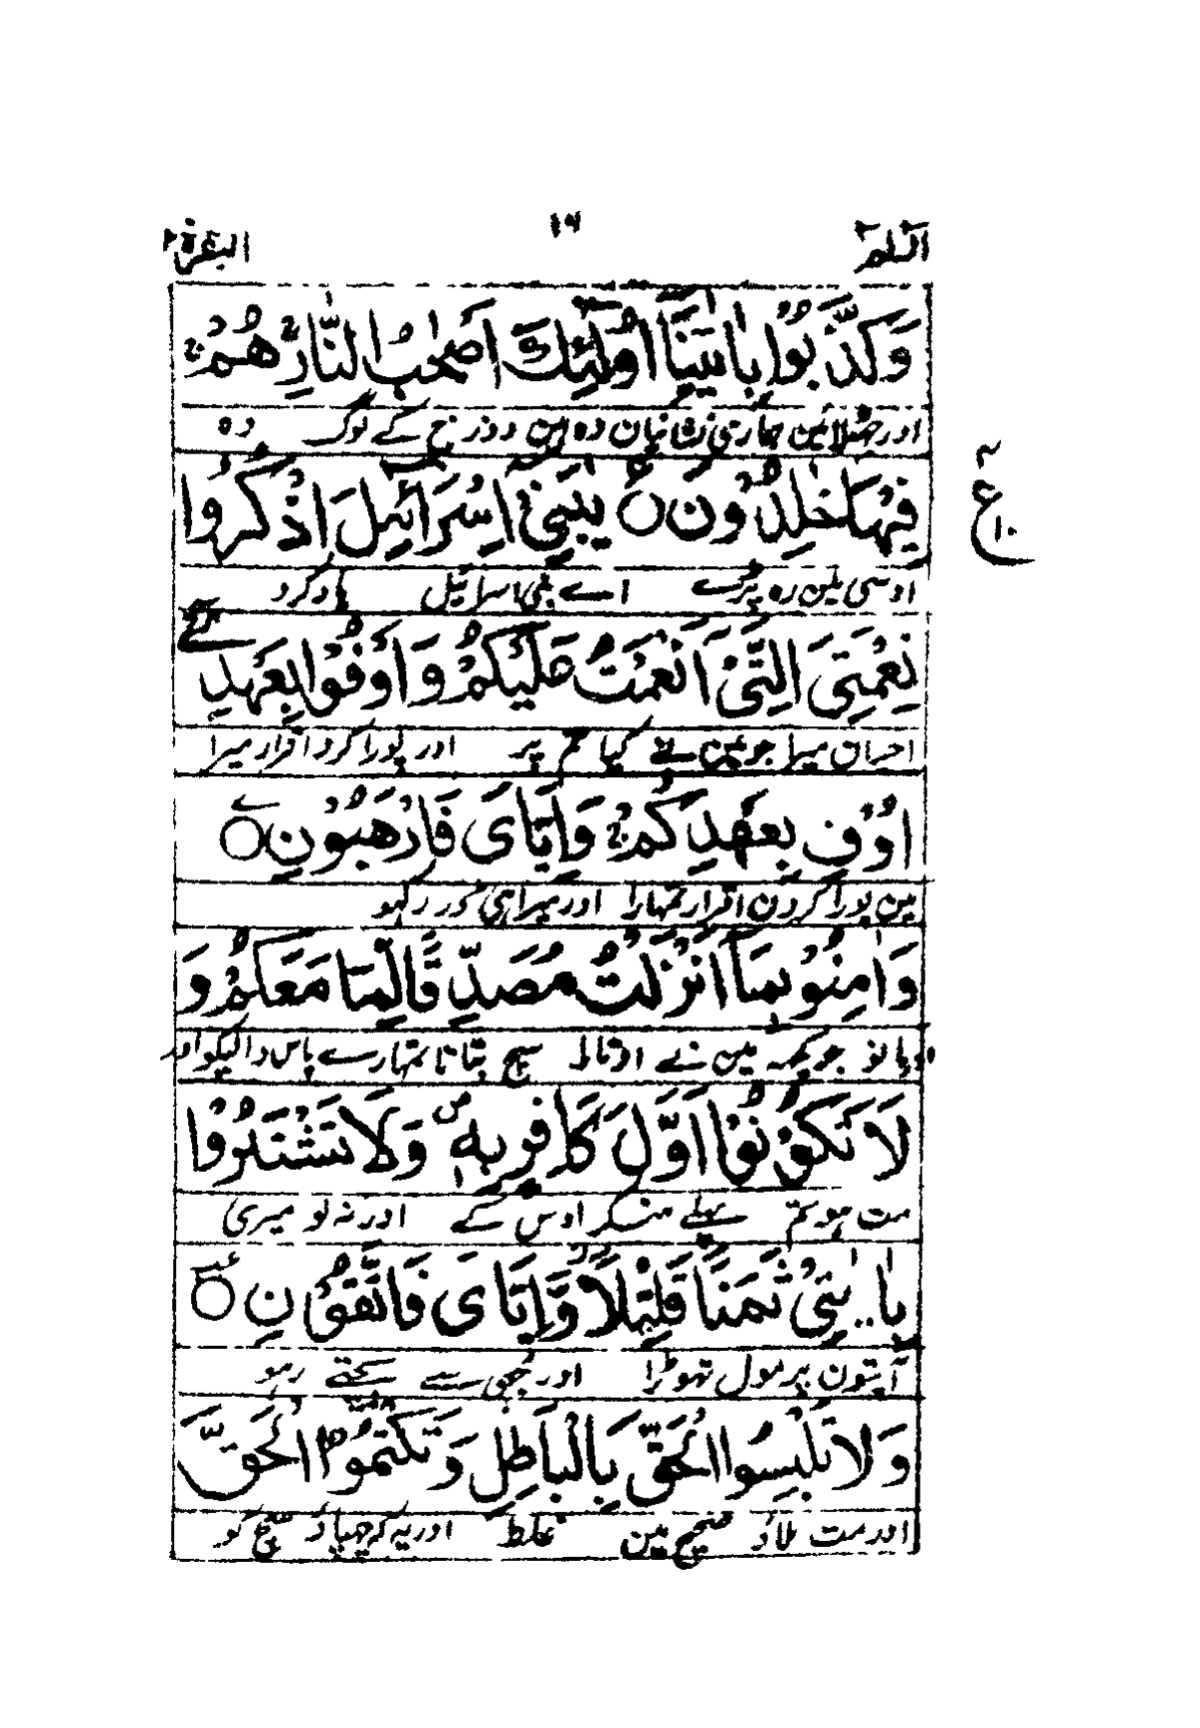 الٓمٓ ١ ١٦ البقرة ٢
وَكَذَّبُوْا بِاٰيٰتِنَآ اُولٰٓئِكَ اَصْحٰبُ النَّارِ ۚ هُمْ
اور جھٹلائین ہماری نشانیان وہ ہین دوزخ کے لوگ وہ
فِيْهَا خٰلِدُوْنَ ○ ع يٰبَنِيْٓ اِسْرَآئِيْلَ اذْكُرُوْا
اوسی مین رہ پڑے اے بنی اسرائیل یاد کرو
نِعْمَتِيَ الَّتِيْٓ اَنْعَمْتُ عَلَيْكُمْ وَاَوْفُوْا بِعَهْدِيْٓ
احسان میرا جو مین نے کیا تم پر اور پورا کرو اقرار میرا
اُوْفِ بِعَهْدِكُمْ ۚ وَاِيَّايَ فَارْهَبُوْنِ ○
مین پورا کرون اقرار تمہارا اور میرا ہی ڈر رکہو
وَاٰمِنُوْا بِمَآ اَنْزَلْتُ مُصَدِّقًا لِّمَا مَعَكُمْ وَ
اور مانو جو کچہ مین نے اوتارا سچ بتاتا تمہارے پاس والیکو اور
لَا تَكُوْنُوْٓا اَوَّلَ كَافِرٍۭ بِهٖ ص وَلَا تَشْتَرُوْا
مت ہو تم پہلے منکر اوس کے اور نہ لو میری
بِاٰيٰتِيْ ثَمَنًا قَلِيْلًا وَّاِيَّايَ فَاتَّقُوْنِ ○
آیتون پر مول تھوڑا اور مجھی سے بچتے رہو
وَلَا تَلْبِسُوا الْحَقَّ بِالْبَاطِلِ وَتَكْتُمُوا الْحَقَّ
اور مت ملاؤ صحیح مین غلط اور یہ کہ چھپاؤ سچ کو